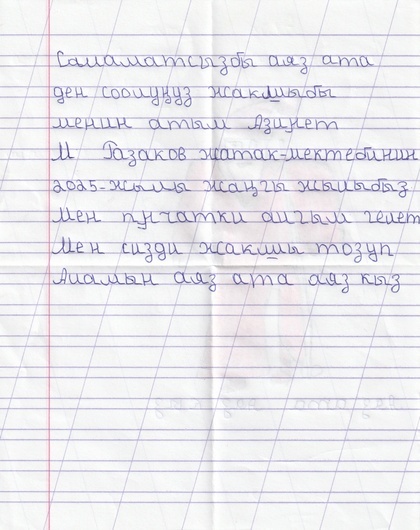 Саламатсызбы аяз ата
ден соолуңуз жакшыбы
менин атым Азинет
М Разаков жатак-мектебинин
2025-жылы жаңгы жылыбыз
Мен пнчатки алгым гелет
Мен сизди жакшы тозуп
Аламын аяз ата аяз кыз